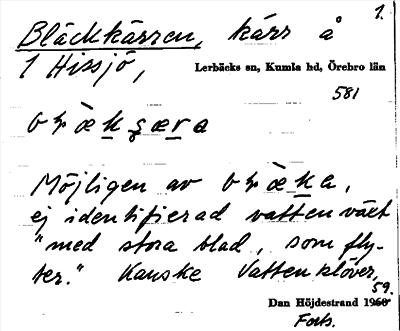 1.
Bläckkärren, kärr å
1 Hissjö,
Lerbäcks sn, Kumla hd, Örebro län
581
Möjligen av
ej identifierad vattenväxt
"med stora blad, som fly-
ter." Kanske Vattenklöver,
59.
Dan Höjdestrand 1960
Forts.